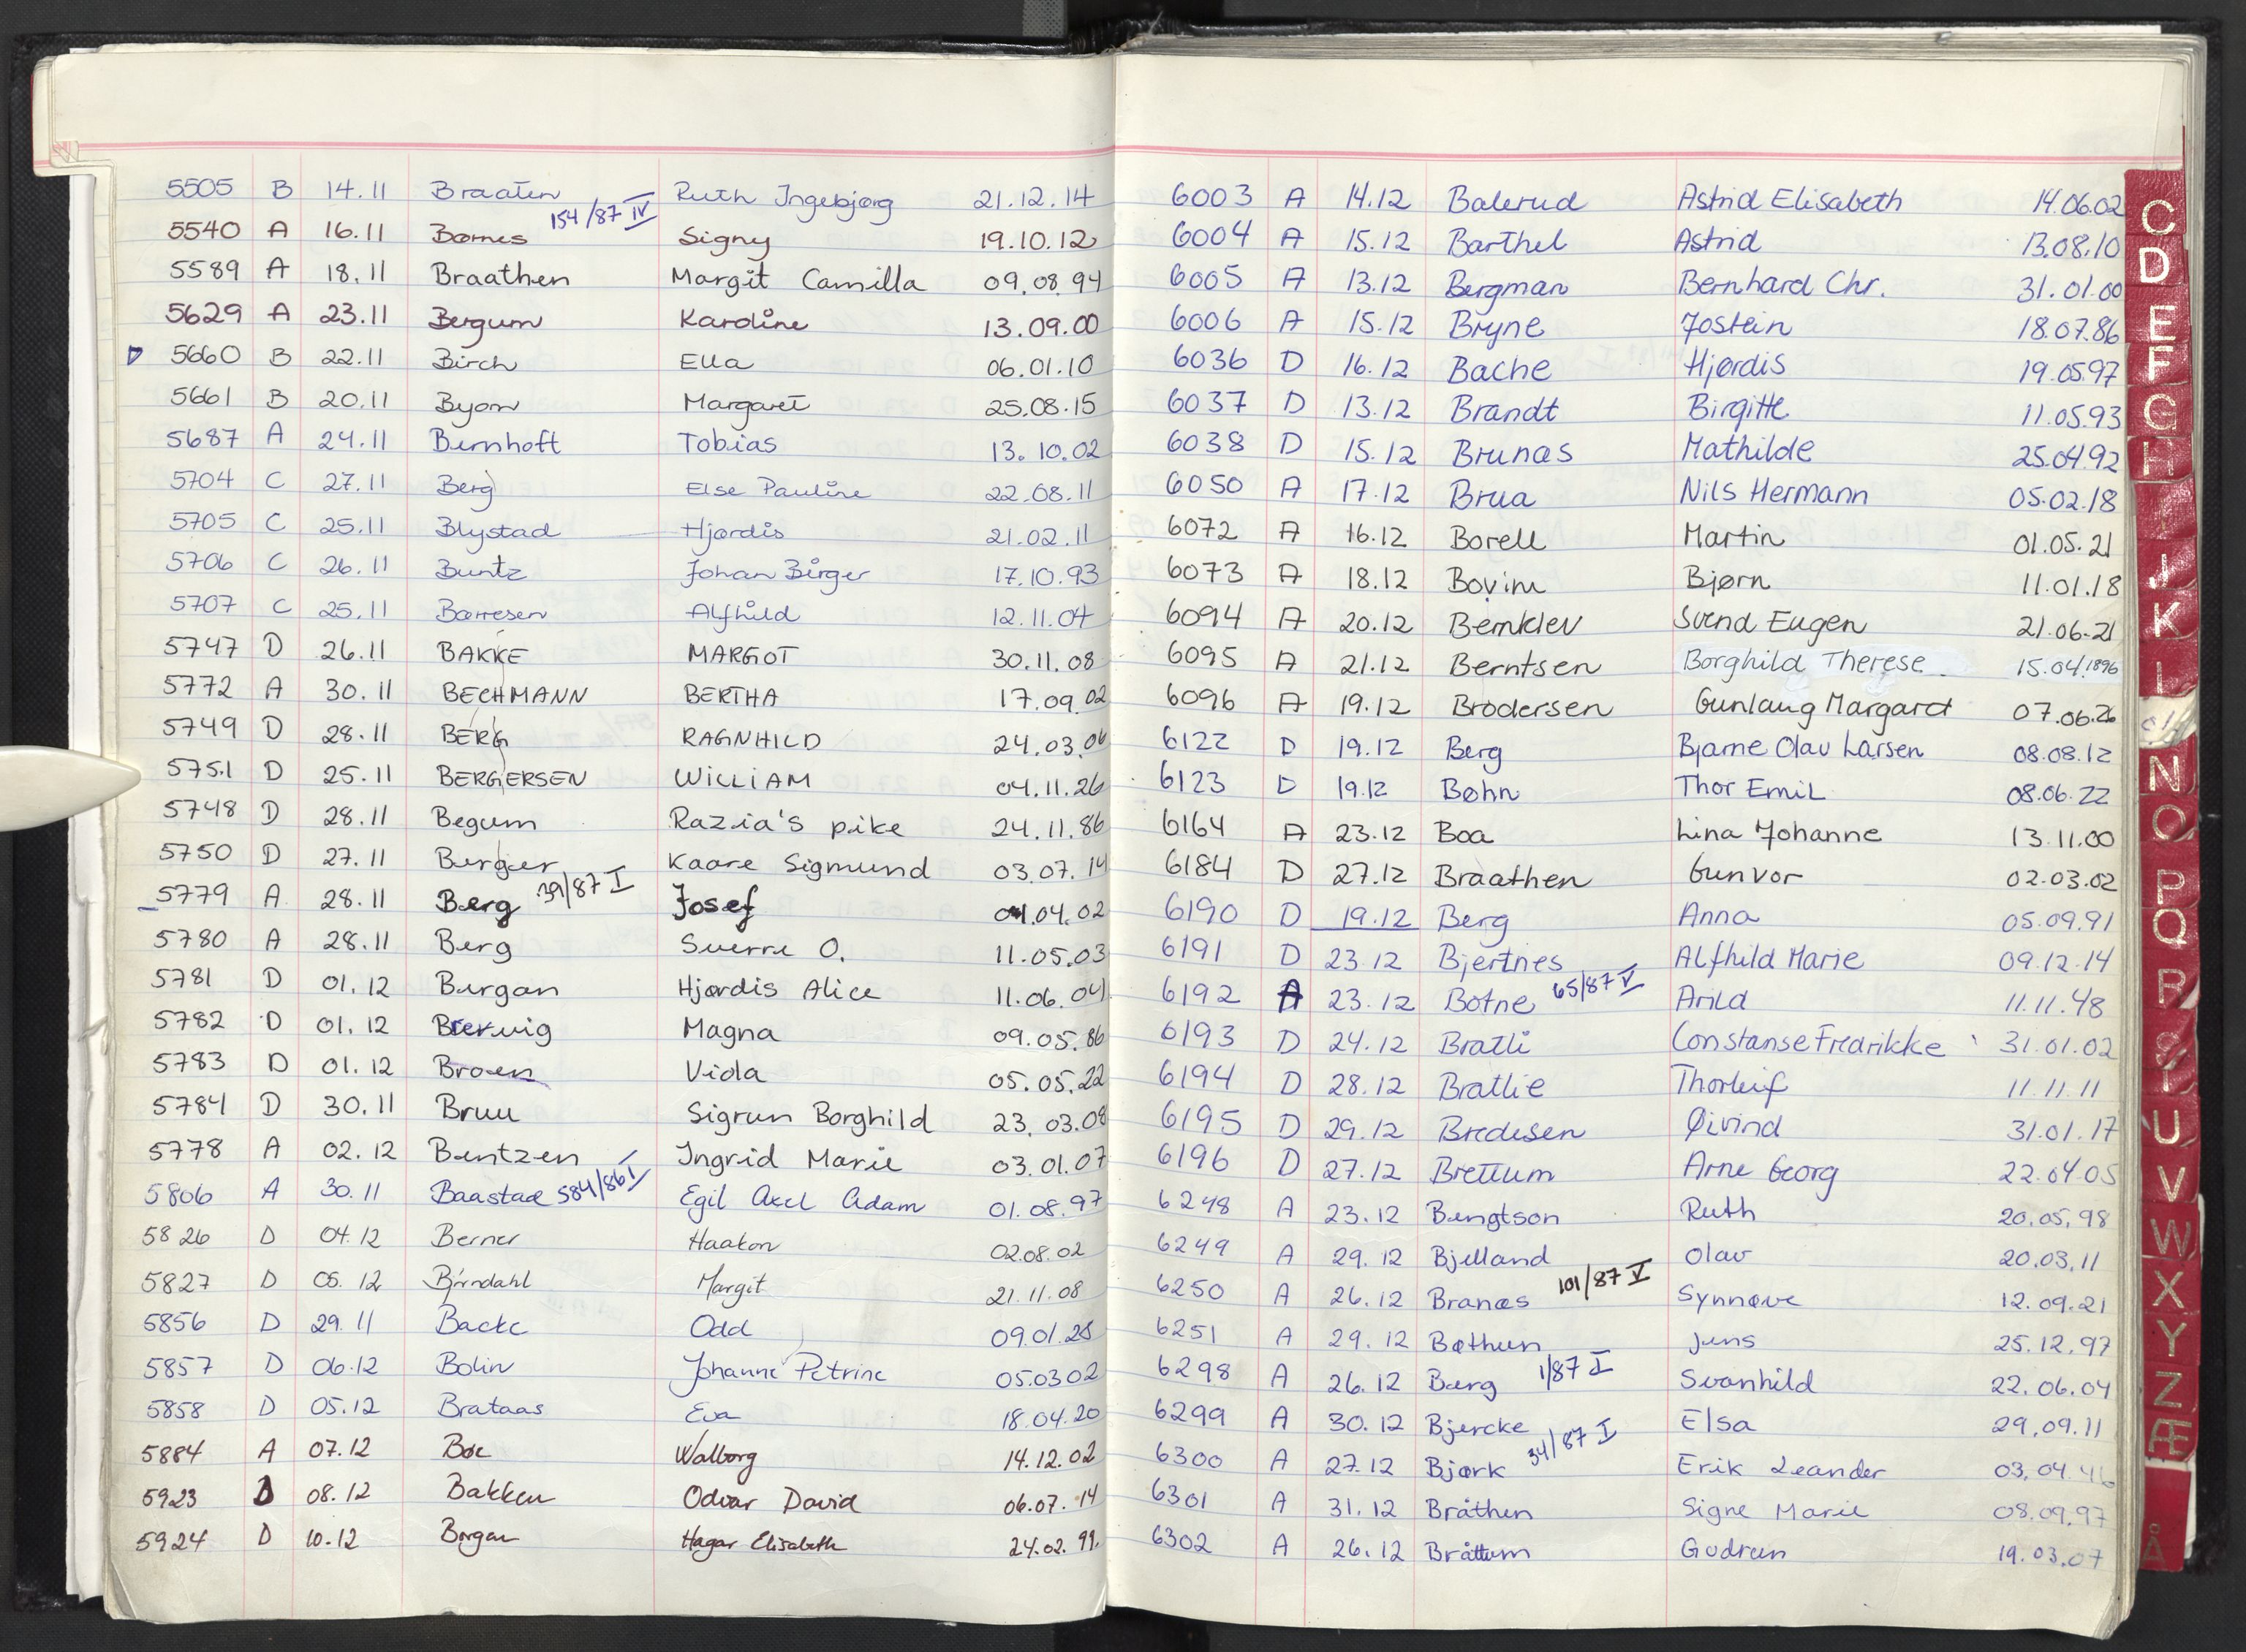 5505 B 14.11 Braaten Ruth Ingebjørg 21.12.14
154/87 IV
5540 A 16.11 Børnes Signy 19.10.12
5589 A 18.11 Braathen Margit Camilla 09.08.94
5629 A 23.11 Bergum Karoline 13.09.00
5660 B 22.11 Birch Ella 06.01.10
5661 B 20.11 Byom Margaret 25.08.15
5687 A 24.11 Bernhoft Tobias 13.10.02
5704 C 27.11 Berg Else Pauline 22.08.11
5705 C 25.11 Blystad Hjørdis 21.02.11
5706 C 26.11 Buntz Johan Birger 17.10.93
5707 C 25.11 Børresen Alfhild 12.11.04
5747 D 26.11 BAKKE MARGOT 30.11.08
5772 A 30.11 BECHMANN BERTHA 17.09.02
5749 D 28.11 BERG RAGNHILD 24.03.06
5751 D 25.11 BERGERSEN WILLIAM 04.11.26
5748 D 28.11 Begum Razia's pike 24.11.86
5750 D 27.11 Berger Kaare Sigmund 03.07.14
39/87 I
5779 A 28.11 Berg Josef 04.02
5780 A 28.11 Berg Sverre O. 11.05.03
5781 D 01.12 Bergan Hjørdis Alice 11.06.04
5782 D 01.12 Magna 09.05.86
5783 D 01.12 Broen Vida 05.05.22
5784 D 30.11 Bruu Sigrun Borghild 23.03.08
5778 A 02.12 Bentzen Ingrid Marie 03.01.07
5806 A 30.11 Baastad 584/86 I Egil Axel Adam 01.08.97
5826 D 04.12 Berner Haakon 02.08.02
5827 D 05.12 Bjørndahl Margit 21.11.08
5856 D 29.11 Backe Odd 09.01.25
5857 D 06.12 Bolin Johanne Petrine 05.03 02
5858 D 05.12 Brataas Eva 18.04.20
5884 A 07.12 Boe Walborg 14.12.02
5923 D 08.12 Bakken Odvar David 06.07.14
5924 D 10.12 Borgen Hagar Elisabeth 24.02.99.
6003 A 14.12 Balerud Astrid Elisabeth 14.06.02
6004 A 15.12 Barthel Astrid 13.08.10
6005 A 13.12 Bergman Bernhard Chr. 31.01.00
6006 A 15.12 Bryne Jostein 18.07.86
6036 D 16.12 Bache Hjørdis 19.05.97
6037 D 13.12 Brandt Birgitte 11.05.93
6038 D 15.12 Brunæs Mathilde 25.04.92
6050 A 17.12 Brua Nils Hermann 05.02.18
6072 A 16.12 Borell Martin 01.05.21
6073 A 18.12 Bovim Bjørn 11.01.18
6094 A 20.12 Bernklev Svend Eugen 21.06.21
6095 A 21.12 Berntsen Borghild Therese 15.04.1896
6096 A 19.12 Brodersen Gunlaug Margaret 07.06.26
6122 D 19.12 Berg Bjarne Olav Larsen 08.08.12
6123 D 19.12 Bøhn Thor Emil 08.06.22
6164 A 23.12 Boa Lina Johanne 13.11.00
6184 D 27.12 Braathen Gunvor 02.03.02
6190 D 19.12 Berg Anna 05.09.91
6191 D 23.12 Bjertnes Alfhild Marie 09.12.14
6192 A 23.12 Botne 65/87 V Arild 11.11.48
6193 D 24.12 Bratli Constanse Fredrikke 31.01.02
6194 D 28.12 Bratlie Thorleif 11.11.11
6195 D 29.12 Bredesen Øivind 31.01.17
6196 D 27.12 Brettum Arne Georg 22.04.05
6248 A 23.12 Bengtson Ruth 20.05.98
6249 A 29.12 Bjelland Olav 20.03.11
6250 A 26.12 Branæs 101/87 V Synnøve 12.09.21
6251 A 29.12 Bøthun Jens 25.12.97
6298 A 26.12 Berg 1/87 I Svanhild 22.06.04
6299 A 30.12 Bjercke Elsa 29.09.11
6300 A 27.12 Bjørk 34/87 I Erik Leander 03.04.46
6301 A 31.12 Bråthen Signe Marie 08.09.97
6302 A 26.12 Bråttum Gudrun 19.03.07
C
D
E
F
G
H
J
K
L
N
O
P
Q
R
S
T
U
V
W
X
Y
Z
Æ
Å